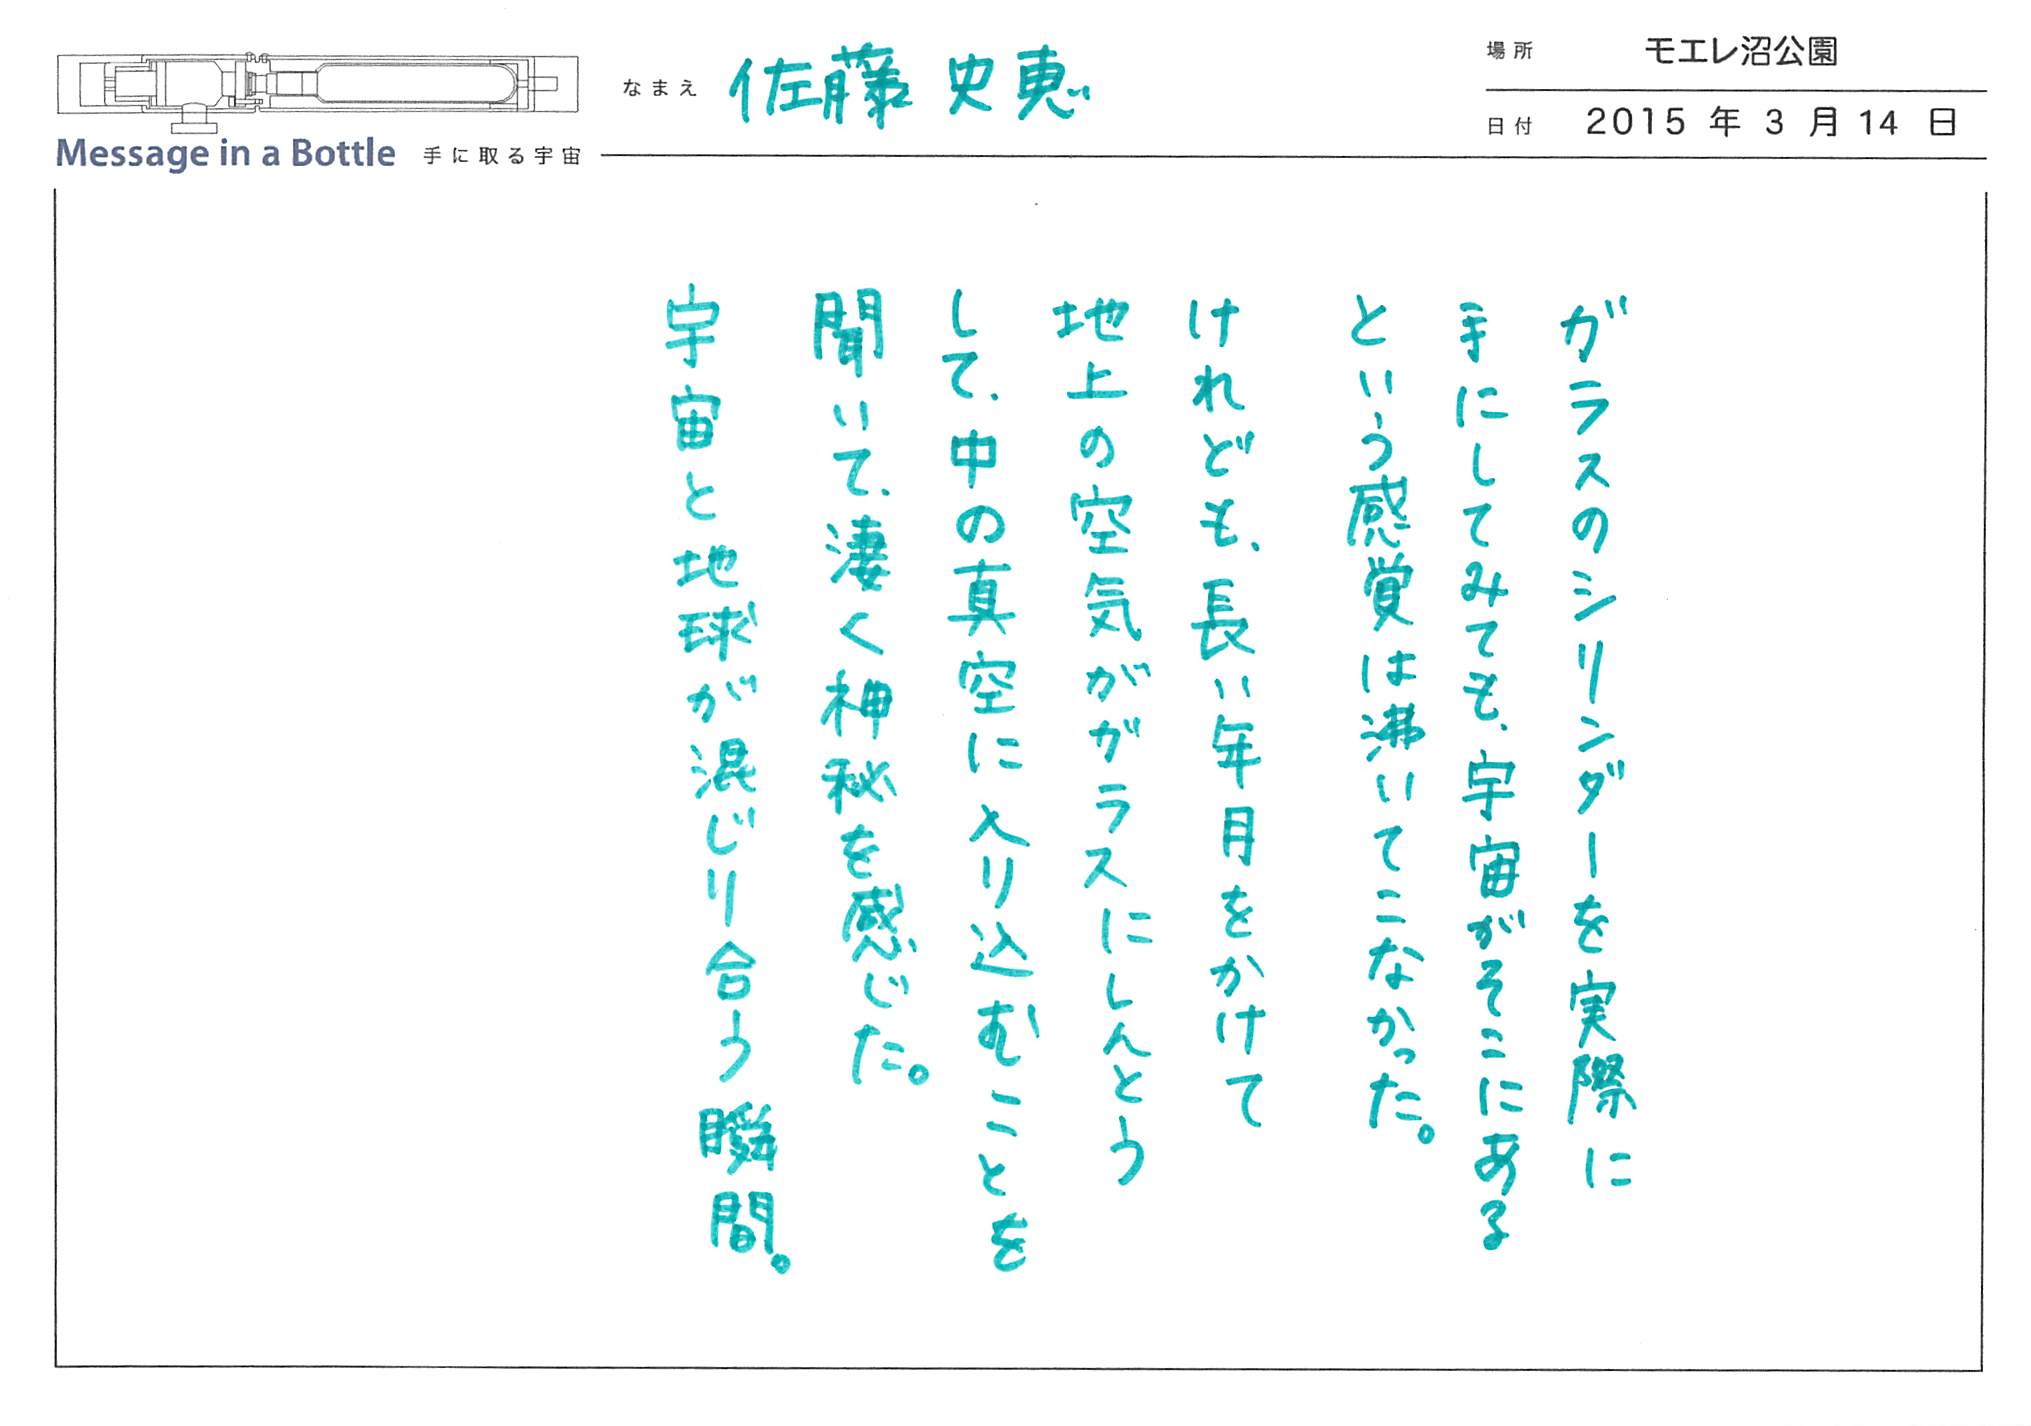 なまえ 佐藤 史恵
場所 モエレ沼公園
日付 2015 年 3 月 14 日
Message in a Bottle 手に取る宇宙
ガラスのシリンダーを実際に
手にしてみても、宇宙がそこにある
という感覚は沸いてこなかった。
けれども、長い年月をかけて
地上の空気がガラスにしんとう
して、中の真空に入り込むことを
聞いて、凄く神秘を感じた。
宇宙と地球が混じり合う瞬間。